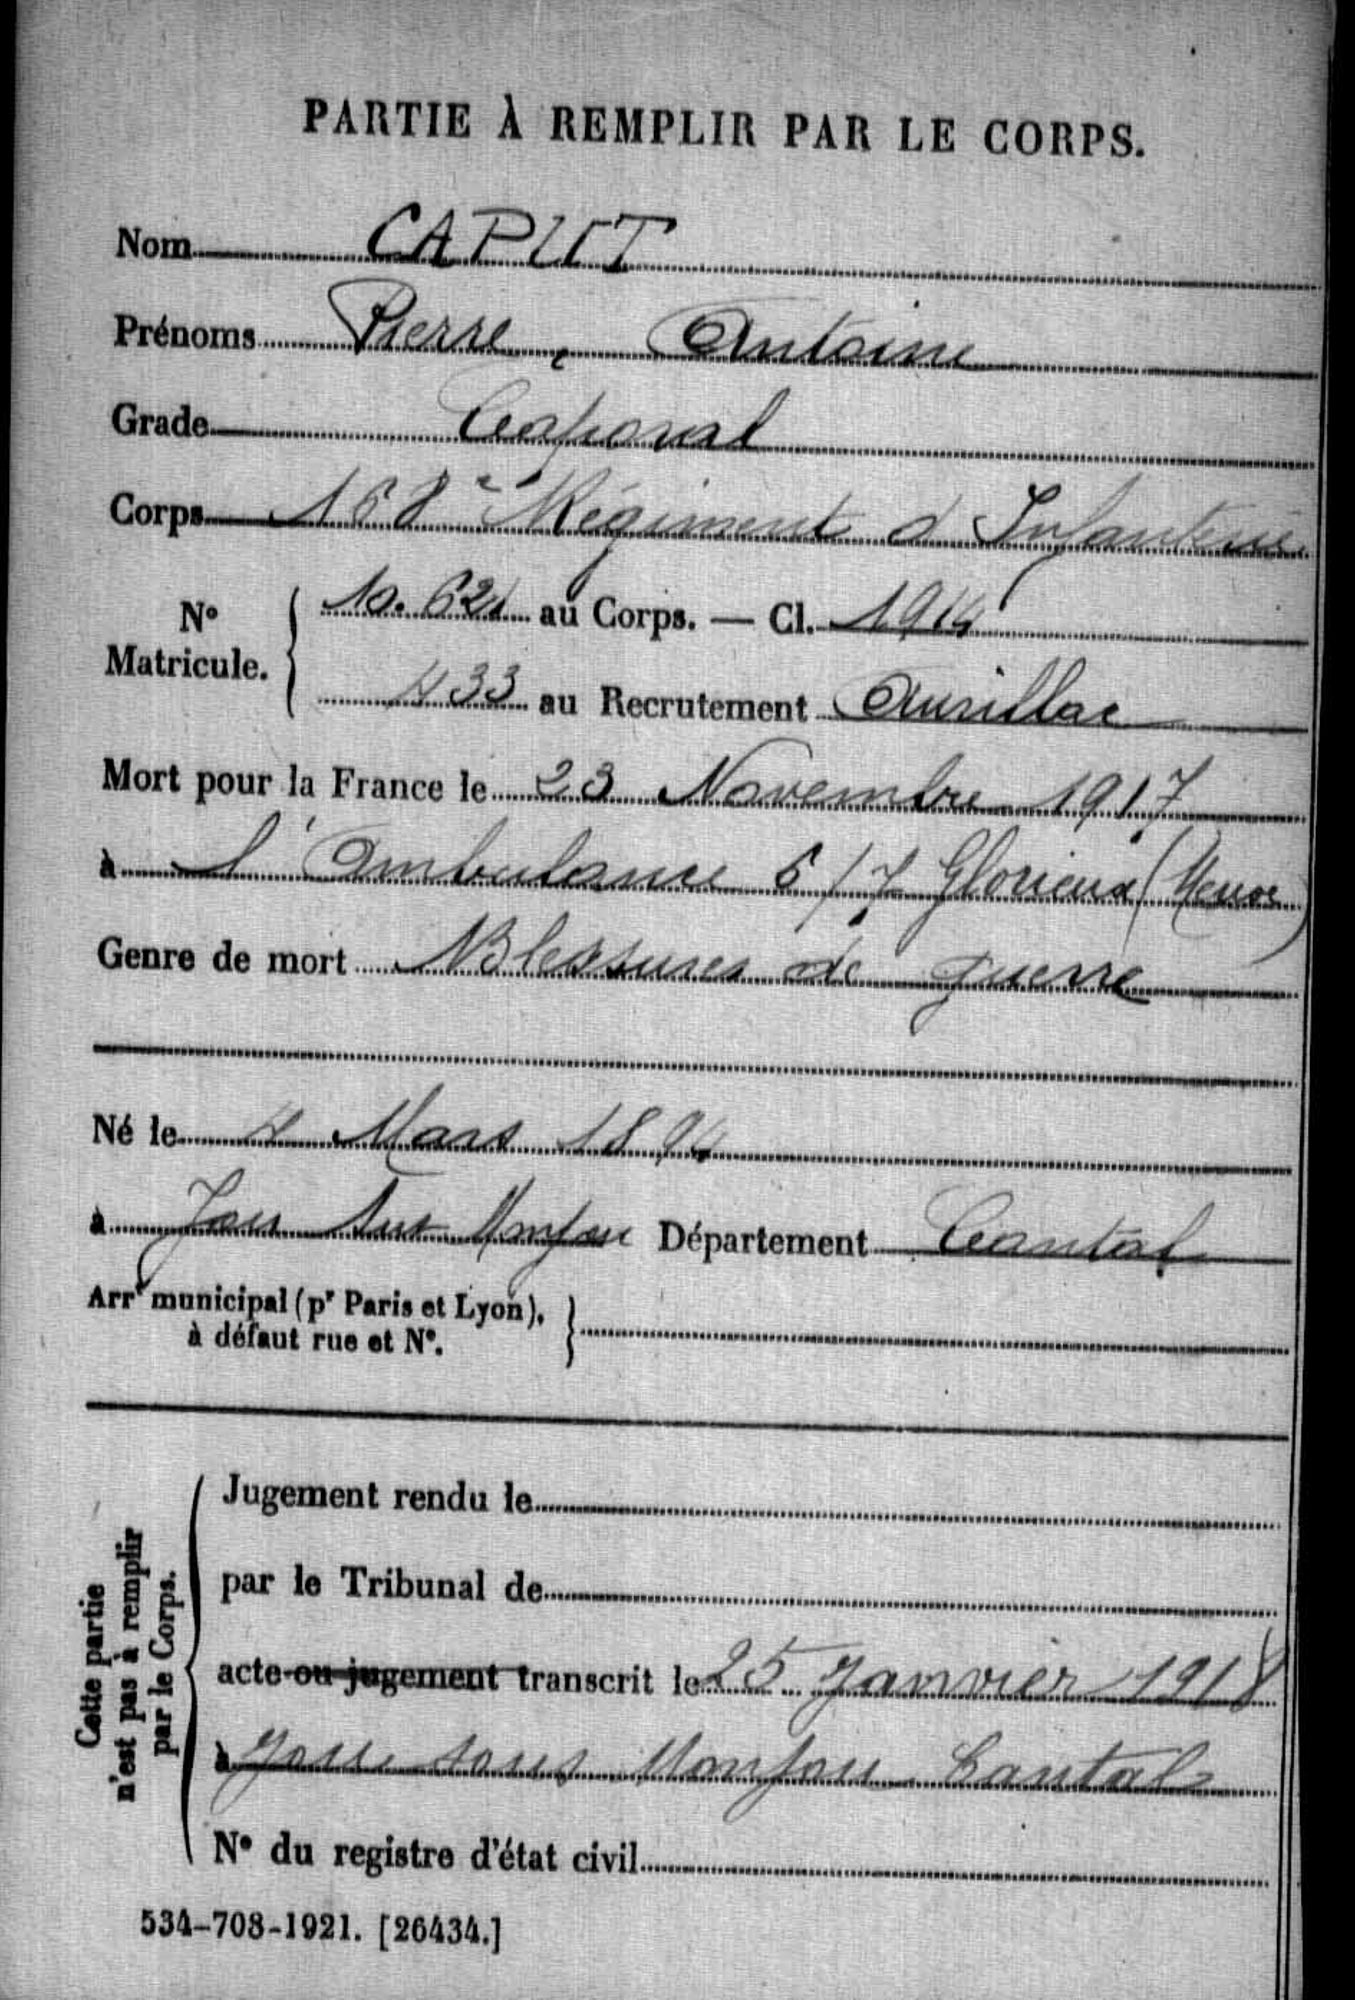 PARTIE À REMPLIR PAR LE CORPS.
Nom CAPUT
Prénoms Pierre, Antoine
Grade Caporal
Corps 168e Régiment d'Infanterie
N° Matricule. { 10.621 au Corps. — Cl. 1914
433 au Recrutement Aurillac
Mort pour la France le 23 Novembre 1917
à l'Ambulance 6/7 Glorieux (Meuse)
Genre de mort Blessures de guerre
Né le 4 Mars 1894
à Jou sur Monjou Département Cantal
Arrt municipal (pr Paris et Lyon), }
à défaut rue et N°.
Cette partie
n'est pas à remplir
par le Corps.
Jugement rendu le
par le Tribunal de
acte ou jugement transcrit le 25 Janvier 1918
à Jou sous Monjou Cantal
N° du registre d'état civil
534-708-1921. [26434.]